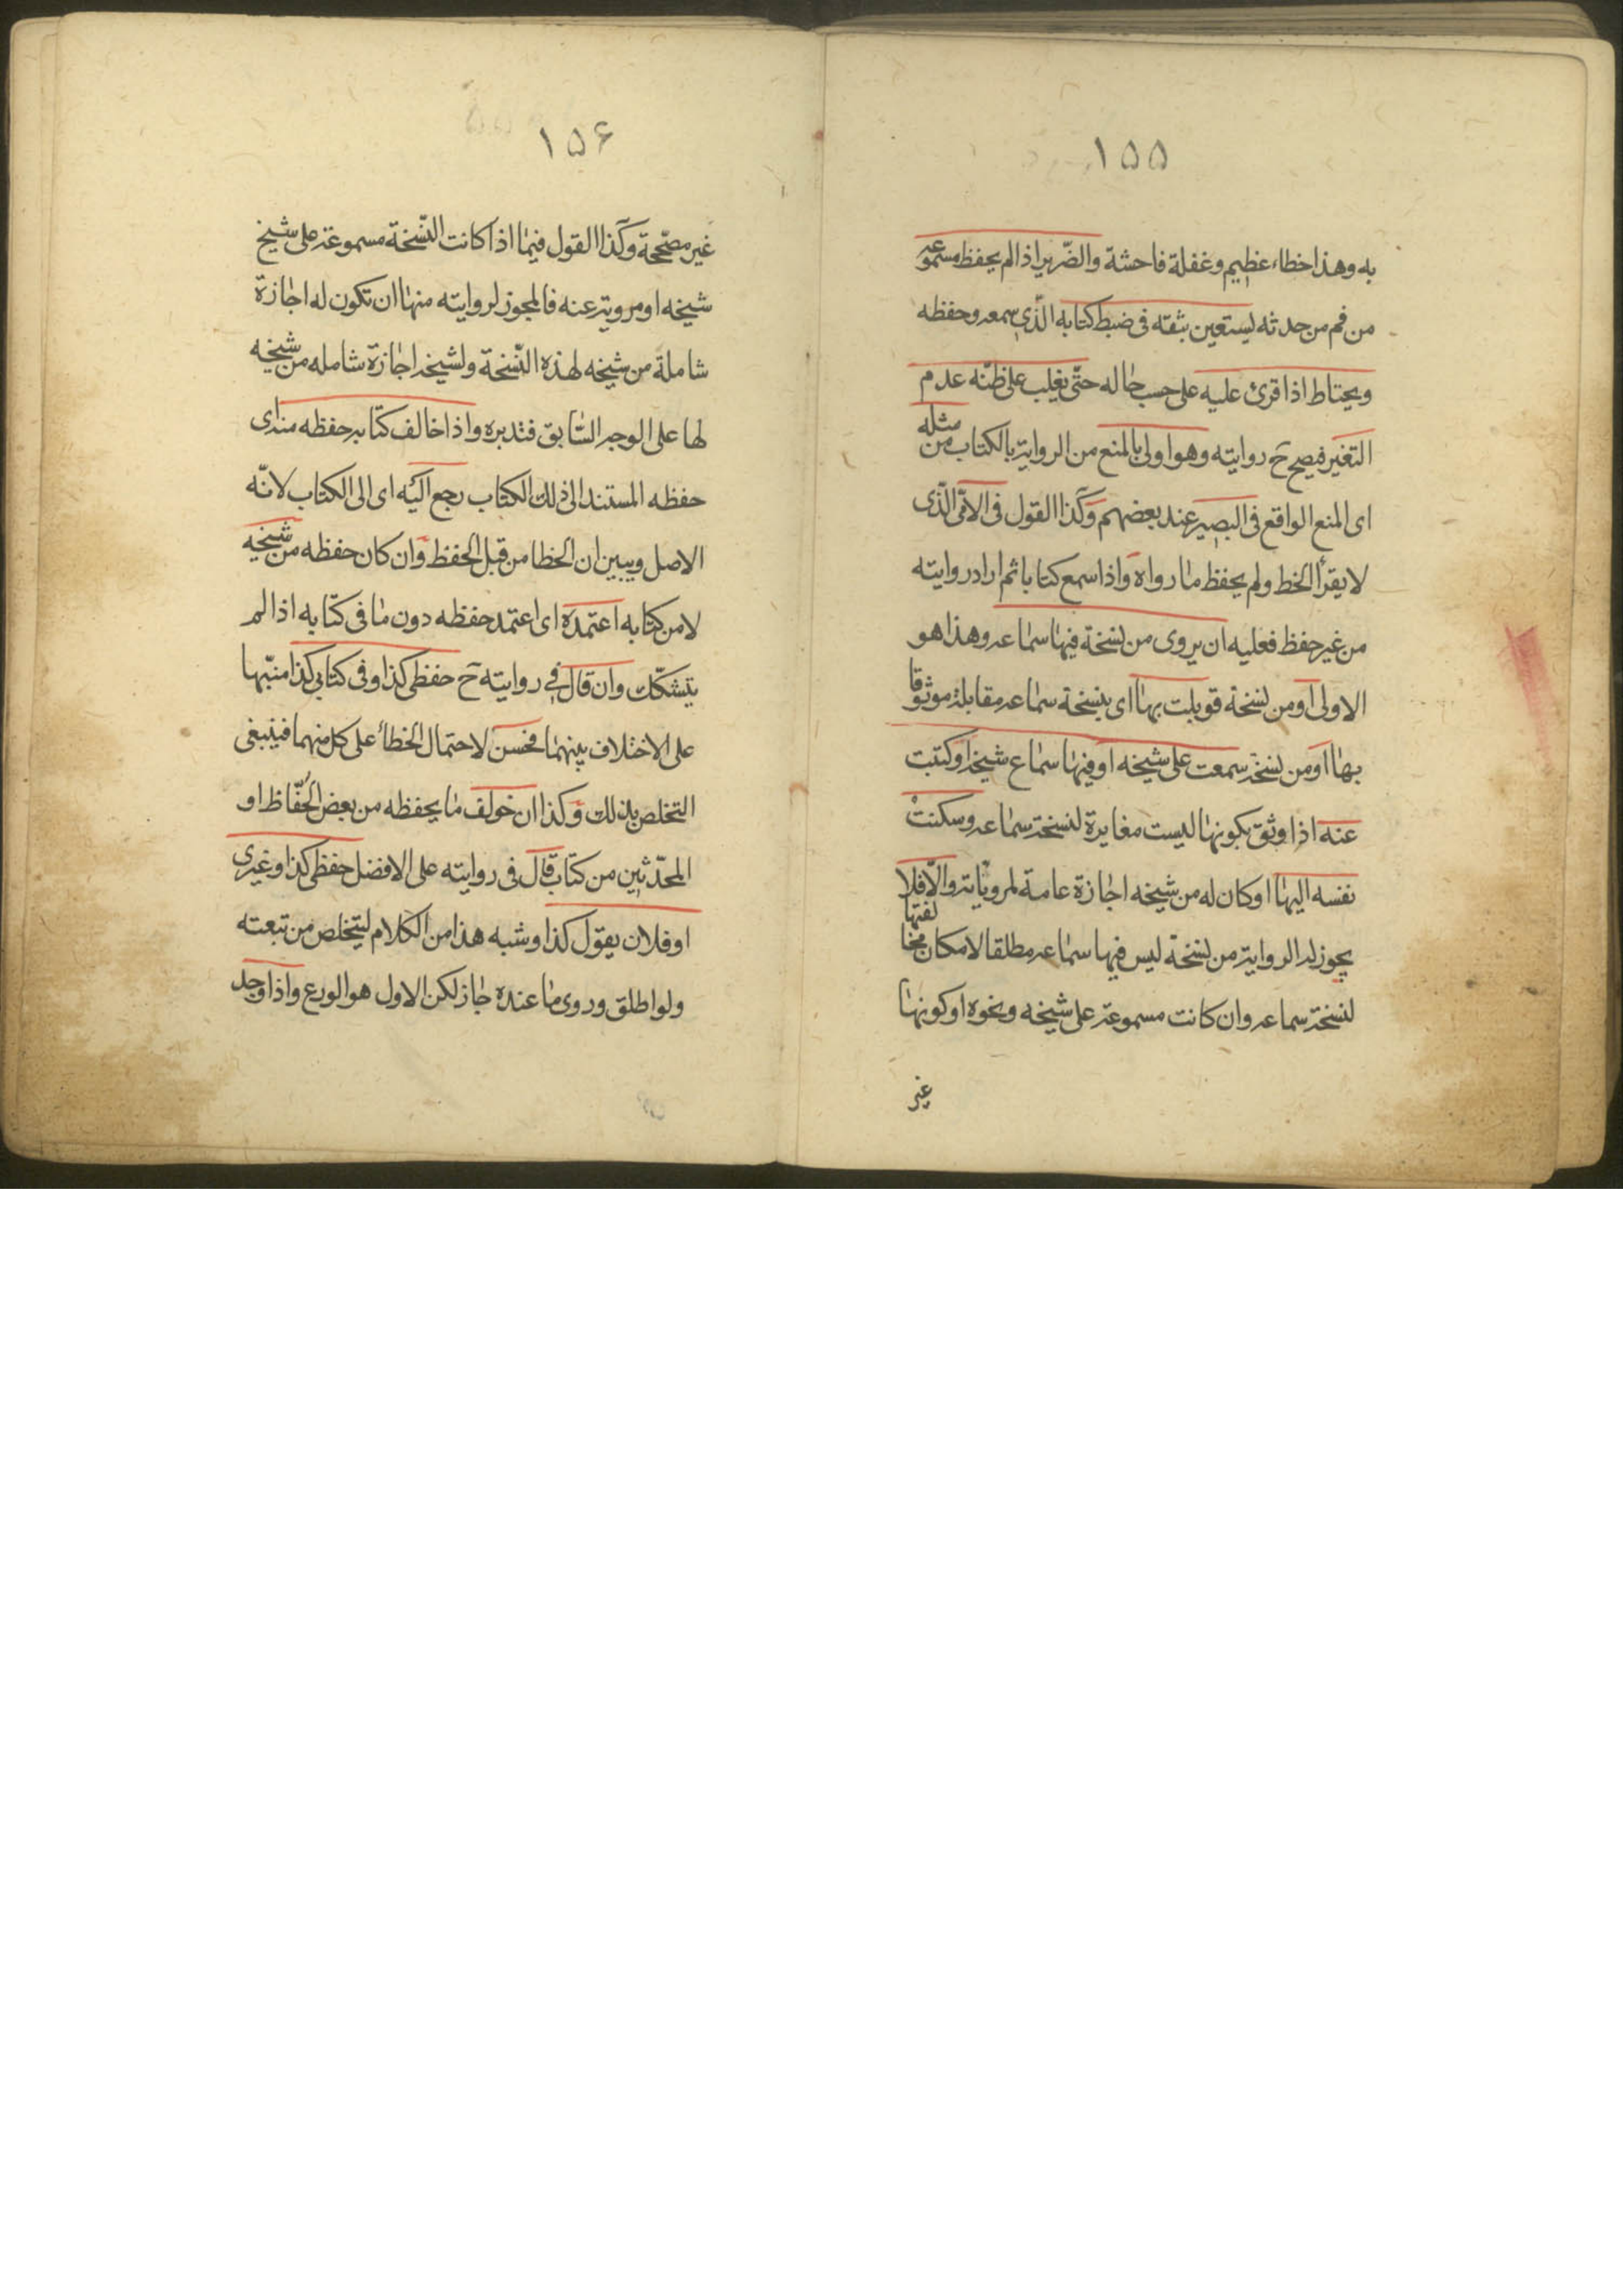 ۱۵۵
به وهذا خطاء عظيم وغفلة فاحشة والضّرير اذا لم يحفظ مسموعه
من فم من حدثه يستعين بثقته فى ضبط كتابه الّذى سمعه وحفظه
ويحتاط اذا قرئ عليه على حسب حاله حتّى يغلب على ظنّه عدم
التغير فيصح ح روايته وهو اولى بالمنع من الرواية بالكتاب من مثله
اى المنع الواقع فى البصير عند بعضهم وكذا القول فى الامّى الّذى
لا يقرأ الخط ولم يحفظ ما رواه واذا سمع كتابا ثم اراد روايته
من غير حفظ فعليه ان يروى من نسخة فيها سماعه وهذا هو
الاولى او من نسخة قوبلت بها اى بنسخة سماعه مقابلة موثوقا
بها او من نسخة سمعت على شيخه او فيها سماع شيخه او كتبت
عنه اذا وثق بكونها ليست مغايرة لنسخة سماعه وسكنت
نفسه اليها او كان له من شيخه اجازة عامة لمروياته والّا فلا
يجوز له الرواية من نسخة ليس فيها سماعه مطلقا لامكان مخالفتها
لنسخة سماعه وان كانت مسموعة على شيخه ونحوه او كونها
غير
۱۵۶
غير مصحّحة وكذا القول فيما اذا كانت النّسخة مسموعة على شيخ
شيخه او مروية عنه فالمجوز لروايته منها ان تكون له اجازة
شاملة من شيخه لهذه النّسخة ولشيخه اجازة شامله من شيخه
لها على الوجه السّابق فتدبره واذا خالف كتابه حفظه منه اى
حفظه المستند الى ذلك الكتاب رجع اليه اى الى الكتاب لانّه
الاصل ويبين ان الخطا من قبل الحفظ وان كان حفظه من شيخه
لا من كتابه اعتمده اى اعتمد حفظه دون ما فى كتابه اذا لم
يتشكّك وان قال فى روايته ح حفظى كذا وفى كتابى كذا منبّها
على الاختلاف بينهما فحسن لاحتمال الخطأ على كل منهما فينبغى
التخلص بذلك وكذا ان خولف ما يحفظه من بعض الحُفّاظ او
المحدّثين من كتاب قال فى روايته على الافضل حفظى كذا وغيرى
او فلان يقول كذا وشبه هذا من الكلام ليتخلص من تبعته
ولو اطلق وروى ما عنده جاز لكن الاول هو الورع واذا وجد